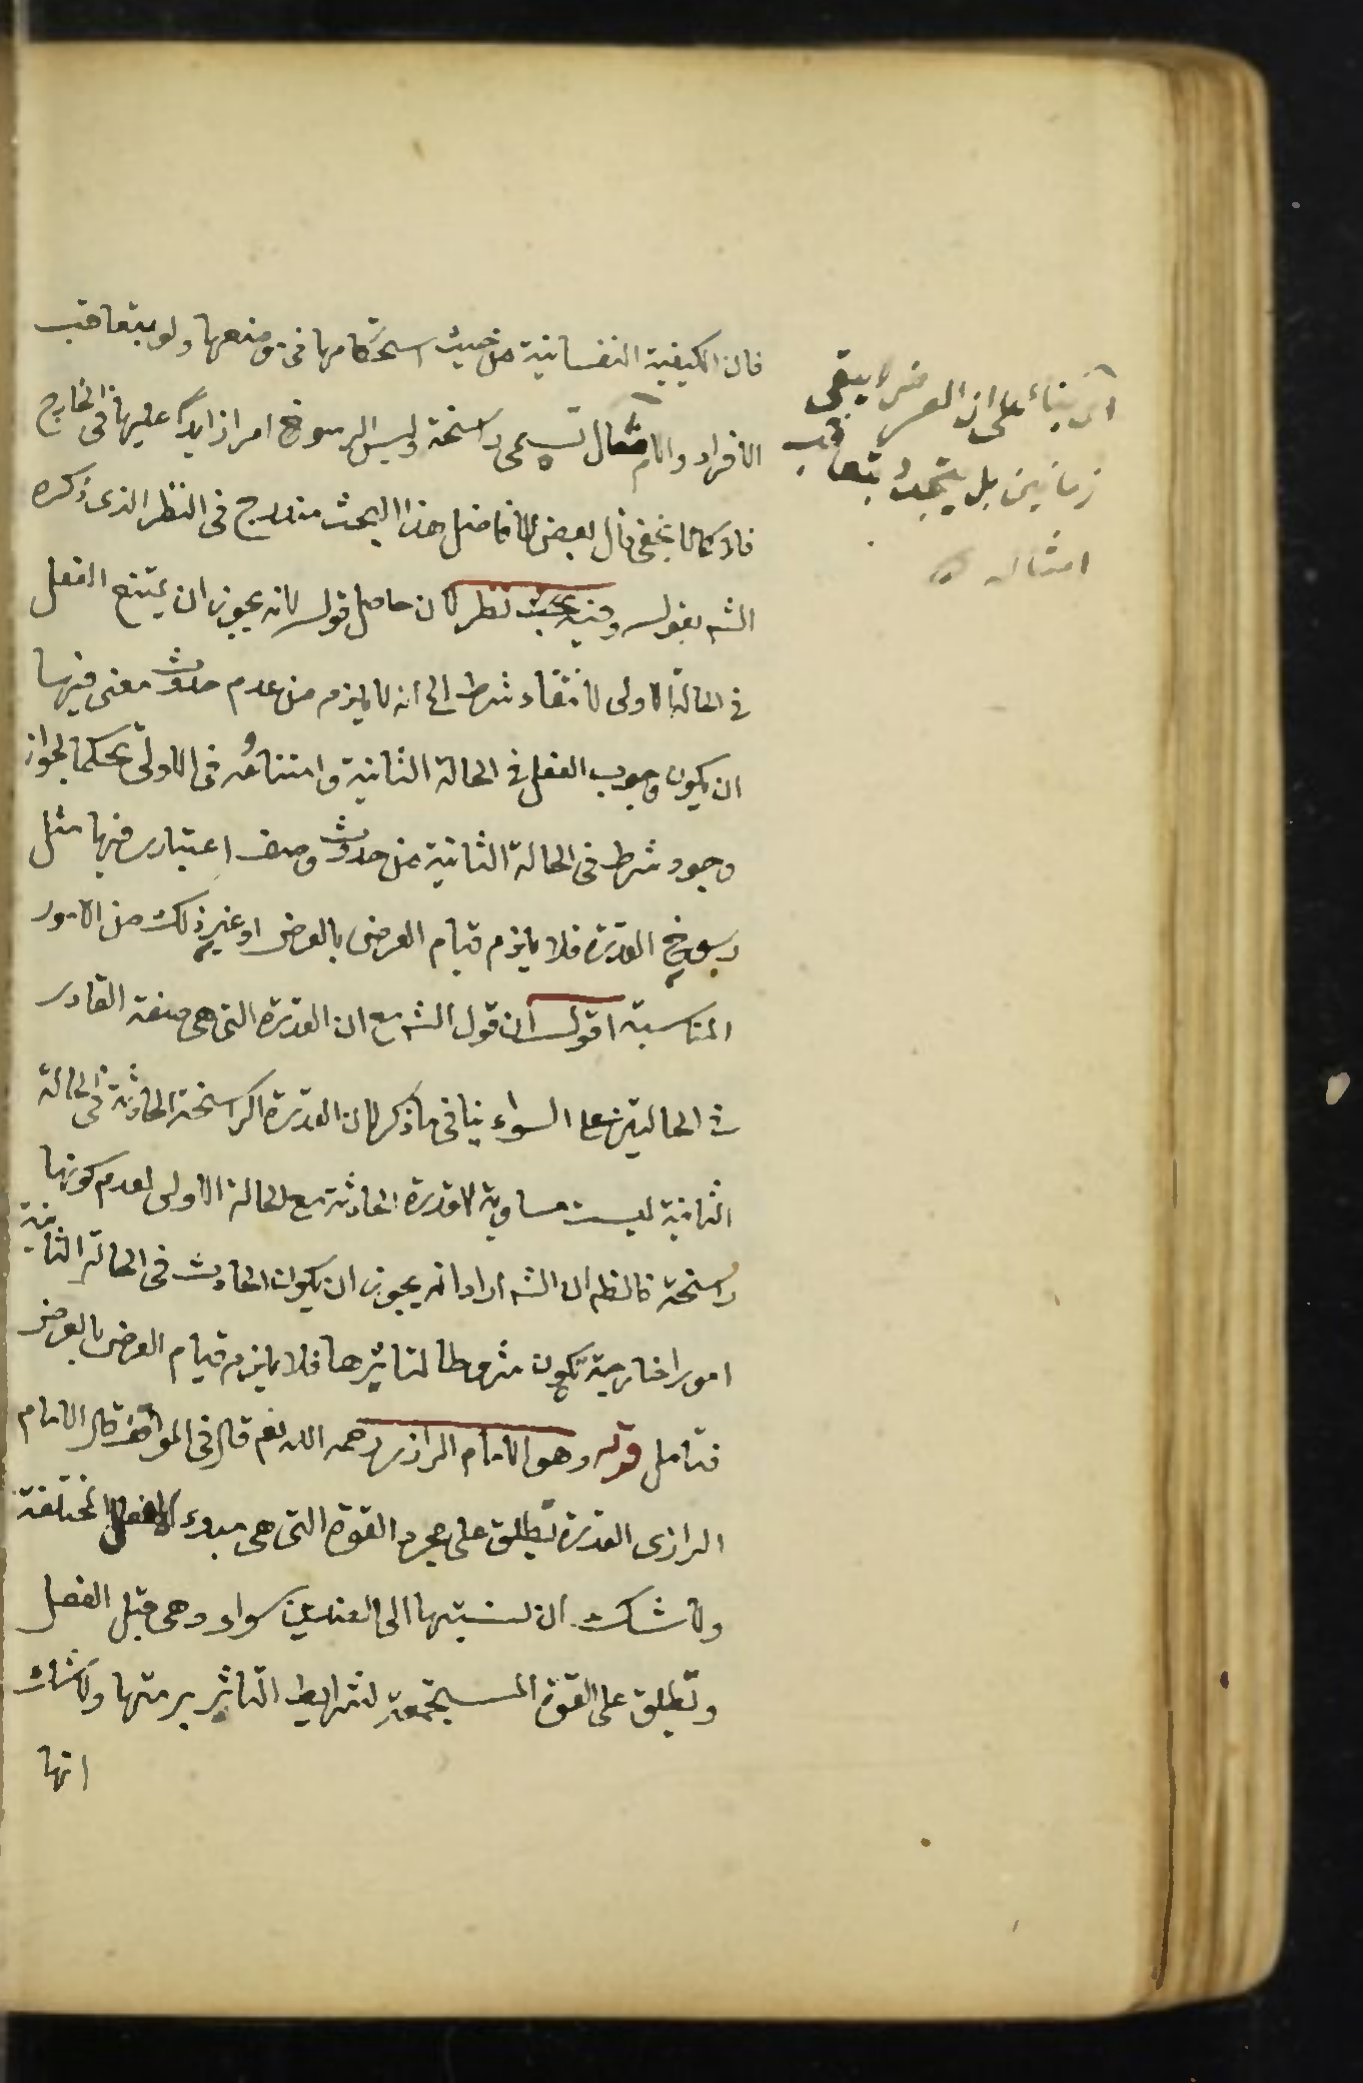 فان الكيفية النفسانية من حيث استحكامها في موضعها ولو بتعاقب
الافراد والامثال تسمى راسخة وليس الرسوخ امرا زايدا عليها في الخارج
كما لا يخفى قال بعض الافاضل هذا البحث مندرج في النظر الذى ذكره
الشه بقوله وفيه نظر لان حاصل قوله لانه يجوز ان يمتنع الفعل
في الحالة الاولى لانتفاء شرط الى انه لا يلزم من عدم حدوث معنى فيها
ان يكون وجوب الفعل في الحالة الثانية وامتناعه في الاولى تحكما لجواز
وجود شرط في الحالة الثانية من حدوث وصف اعتبارى فيها مثل
رسوخ القدرة فلا يلزم قيام العرض بالعرض او غير ذلك من الامور
المناسبة اقول ان قول الشه مع ان القدرة التى هى صفة القادر
في الحالتين على السواء ينافى ما ذكر لان القدرة الراسخة الحادثة في الحالة
الثانية ليست مساوية لاقدرة الحادثة مع الحالة الاولى لعدم كونها
راسخة فالظم ان الشه اراد انه يجوز ان يكون الحادث في الحالة الثانية
امورا خارجية تكون شروطا لتاثيرها فلا يلزم قيام العرض بالعرض
فتامل قوله وهو الامام الرازى رحمه الله نعم قال في المواقف قال الامام
الرازى القدرة تطلق على مجرد القوة التى هى مبدء الافعال المختلفة
ولا شك ان نسبتها الى الضدين سواء وهى قبل الفعل
وتطلق على القوة المستجمعة لشرايط التاثير برمتها ولا شك
انها
اى بناء على ان العرض لا يبقى
زمانين بل يتجدد بتعاقب
امثاله